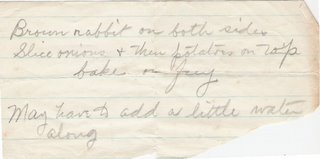 Brown rabbit on both sides
Slice onions & then potatoes on top
bake or fry
May have to add a little water
along